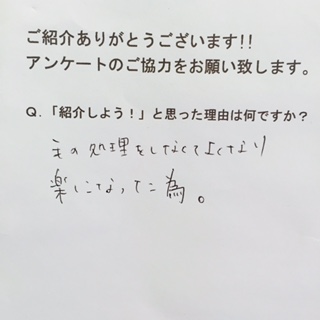 ご紹介ありがとうございます!!
アンケートのご協力をお願い致します。
Q.「紹介しよう!」と思った理由は何ですか?
毛の処理をしなくてよくなり
楽になった為。